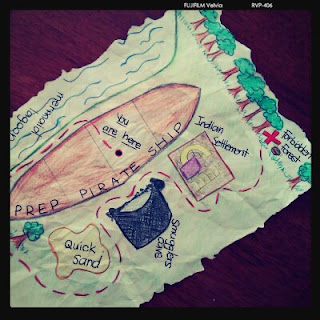 FUJIFILM Velvia
RVP-406
mermaid
lagoon
You
are Here
PREP PIRATE SHIP
Indian
Settlement
Forbidden
Forest
Quick
Sand
Smugglers
Cave